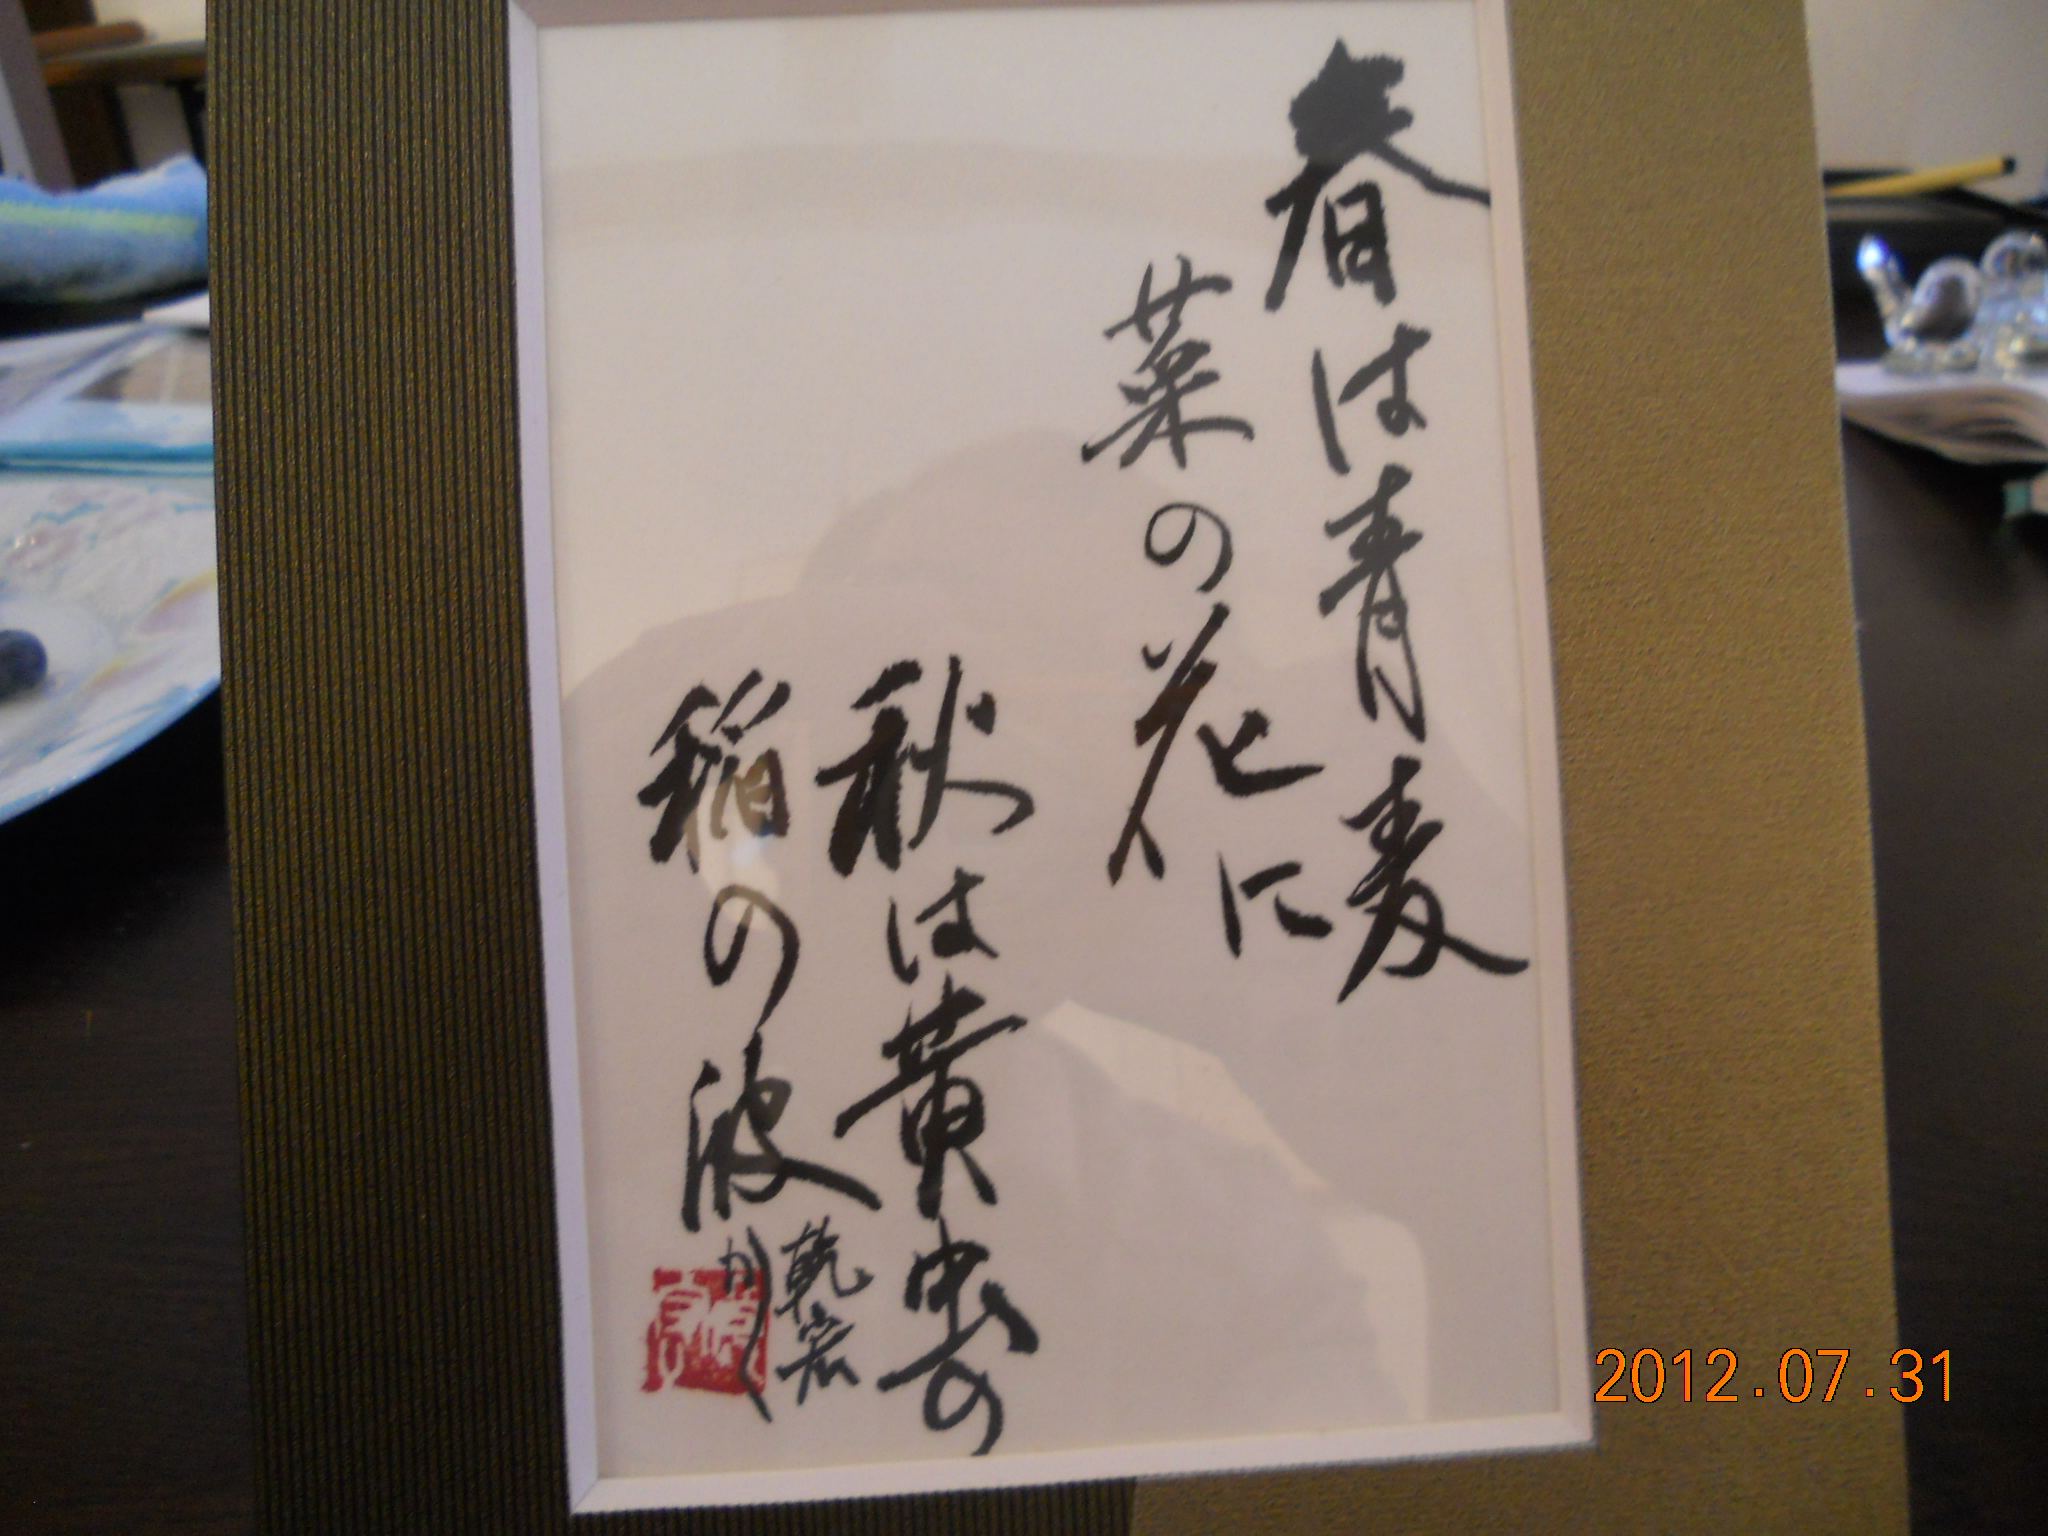 春は青麦
菜の花に
秋は黄虫の
稲の波
乾宏
かく
2012.07.31